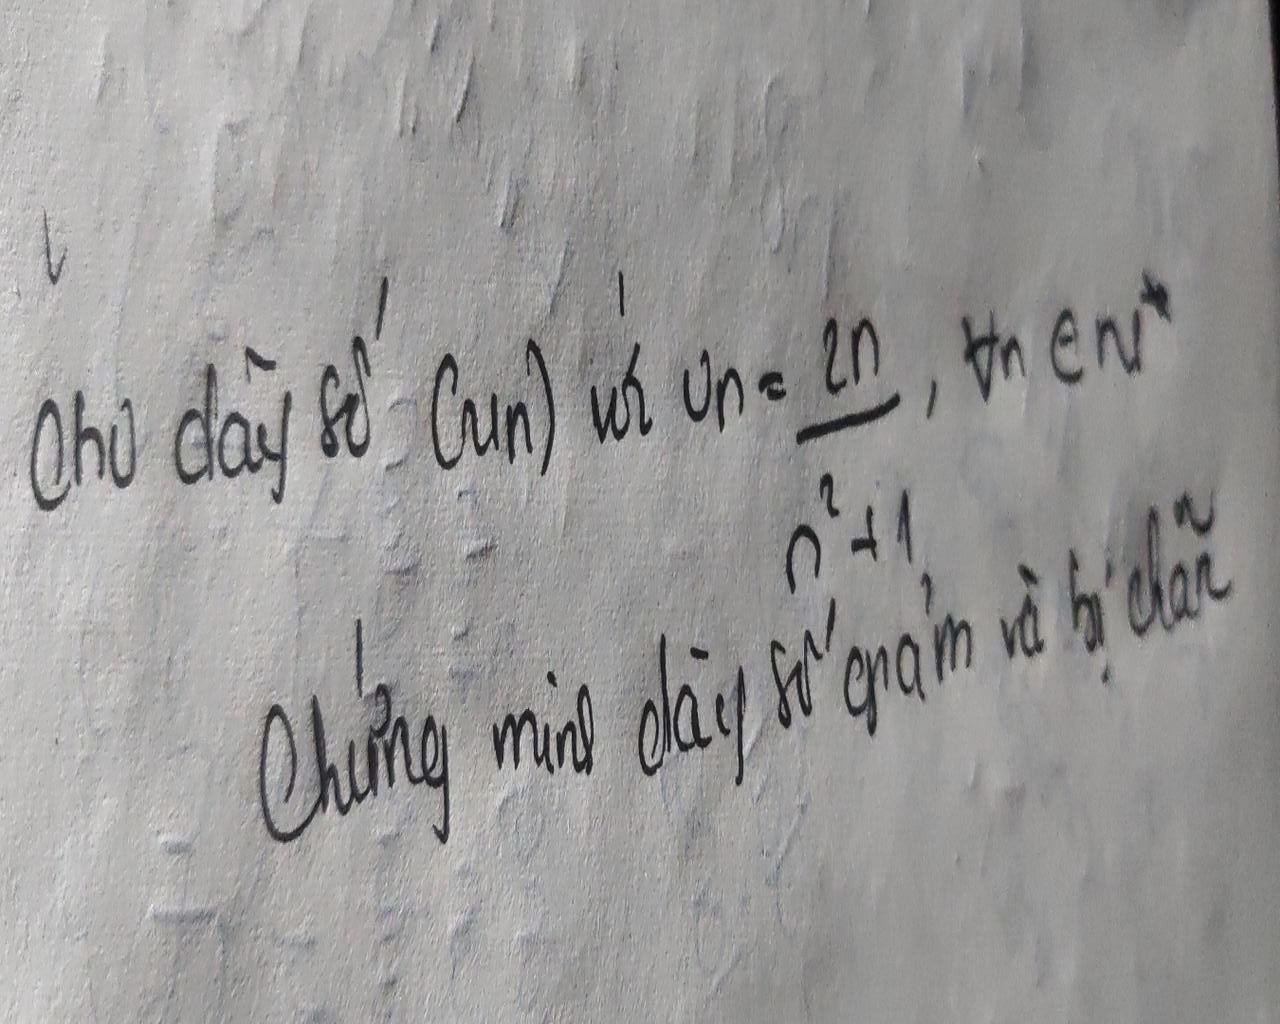 Cho dãy số (un) với un = 2n/n²+1, ∀n ∈ N*
Chứng minh dãy số giảm và bị chặn